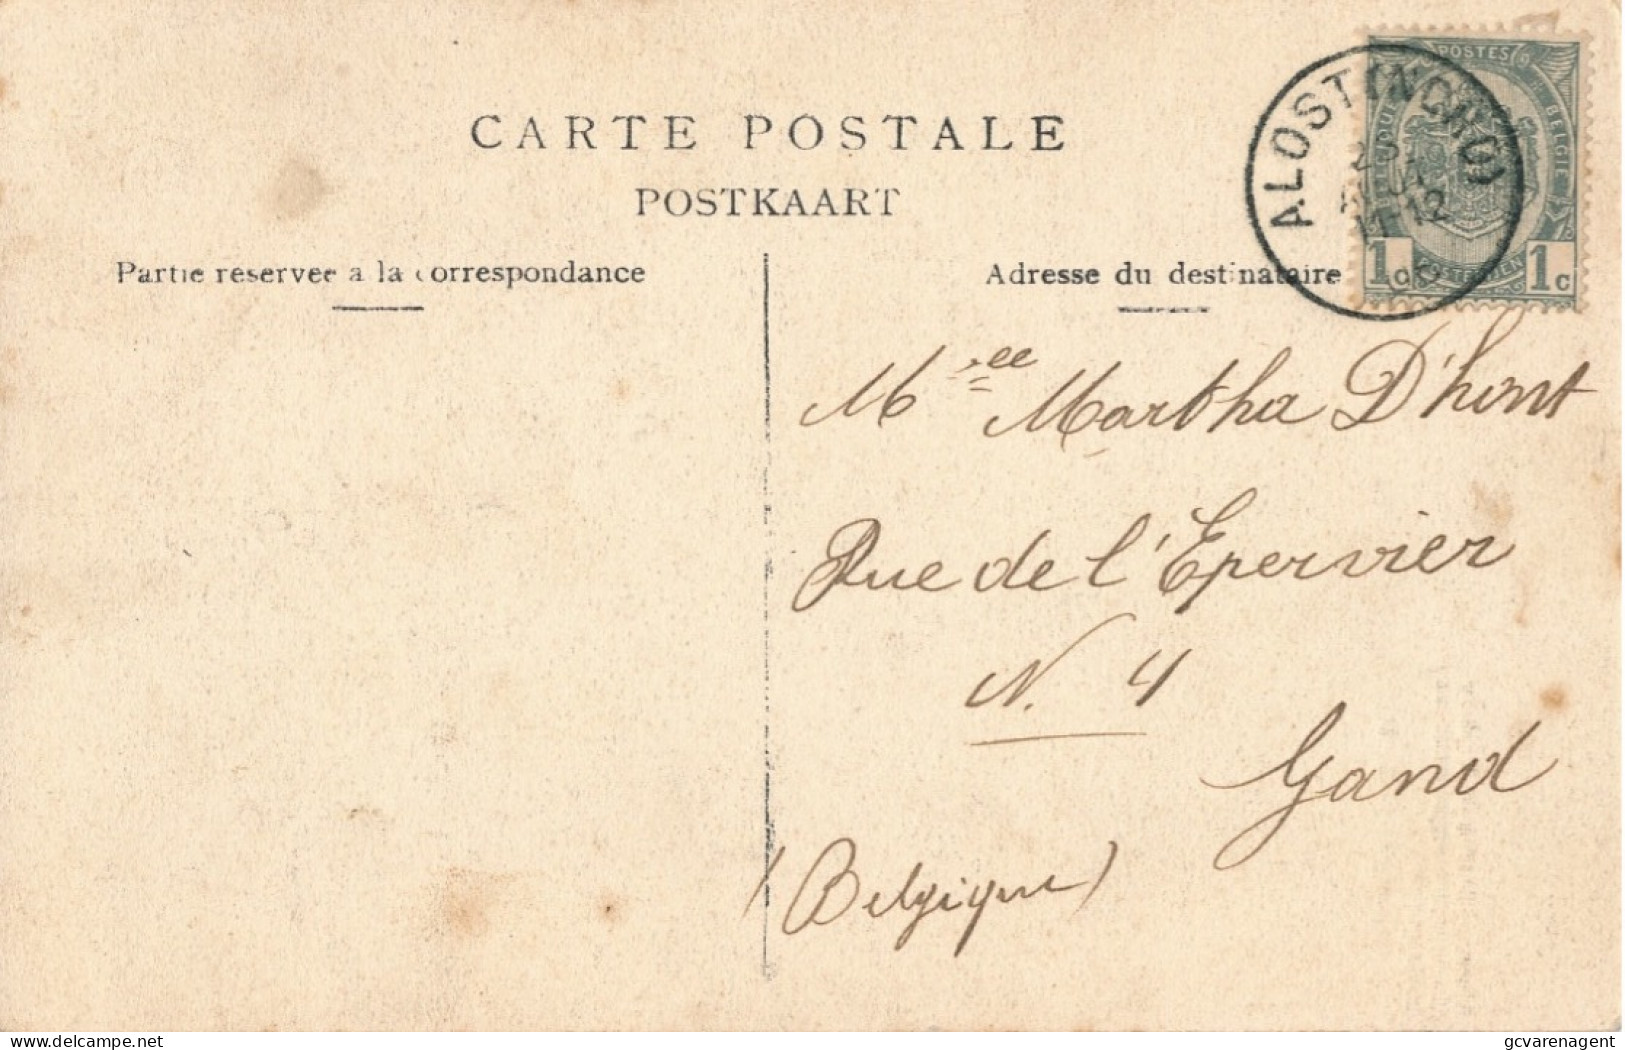 CARTE POSTALE
POSTKAART
Partie réservée à la correspondance
Adresse du destinataire
POSTES
BELGIQUE
BELGIE
POSTERIJEN
1 c
1 c
ALOST
11-12
Melle Martha D'hont
Rue de l'Epervier
N. 4
Gand
(Belgique)
delcampe.net
gcvarenagent